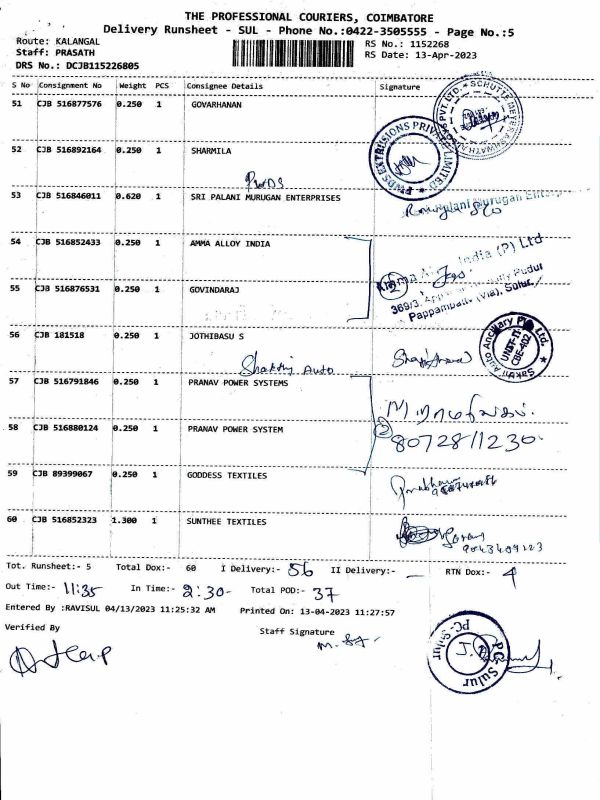 THE PROFESSIONAL COURIERS, COIMBATORE
Delivery Runsheet - SUL - Phone No.:0422-3505555 - Page No.:5
Route: KALANGAL
RS No.: 1152268
Staff: PRASATH
RS Date: 13-Apr-2023
DRS No.: DCJB115226805
S No Consignment No Weight PCS Consignee Details Signature
51 CJB 516877576 0.250 1 GOVARHANAN
52 CJB 516892164 0.250 1 SHARMILA
PWDS
PWDS EXTRUSIONS PRIVATE LIMITED
53 CJB 516846011 0.620 1 SRI PALANI MURUGAN ENTERPRISES
54 CJB 516852433 0.250 1 AMMA ALLOY INDIA
India (P) Ltd
55 CJB 516876531 0.250 1 GOVINDARAJ
Pappampatti (Via), Sulur.
56 CJB 181518 0.250 1 JOTHIBASU S
Shakthy Auto
Sakthi Auto Ancillary P Ltd.
UNIT-II
CBE-402
57 CJB 516791846 0.250 1 PRANAV POWER SYSTEMS
58 CJB 516880124 0.250 1 PRANAV POWER SYSTEM
2
8072811230
59 CJB 89399067 0.250 1 GODDESS TEXTILES
60 CJB 516852323 1.300 1 SUNTHEE TEXTILES
9043409123
Tot. Runsheet:- 5 Total Dox:- 60 I Delivery:- 56 II Delivery:- — RTN Dox:- 4
Out Time:- 11:35 In Time:- 2:30- Total POD:- 37
Entered By :RAVISUL 04/13/2023 11:25:32 AM Printed On: 13-04-2023 11:27:57
Verified By
Staff Signature
PC - Sulur
PC Sulur